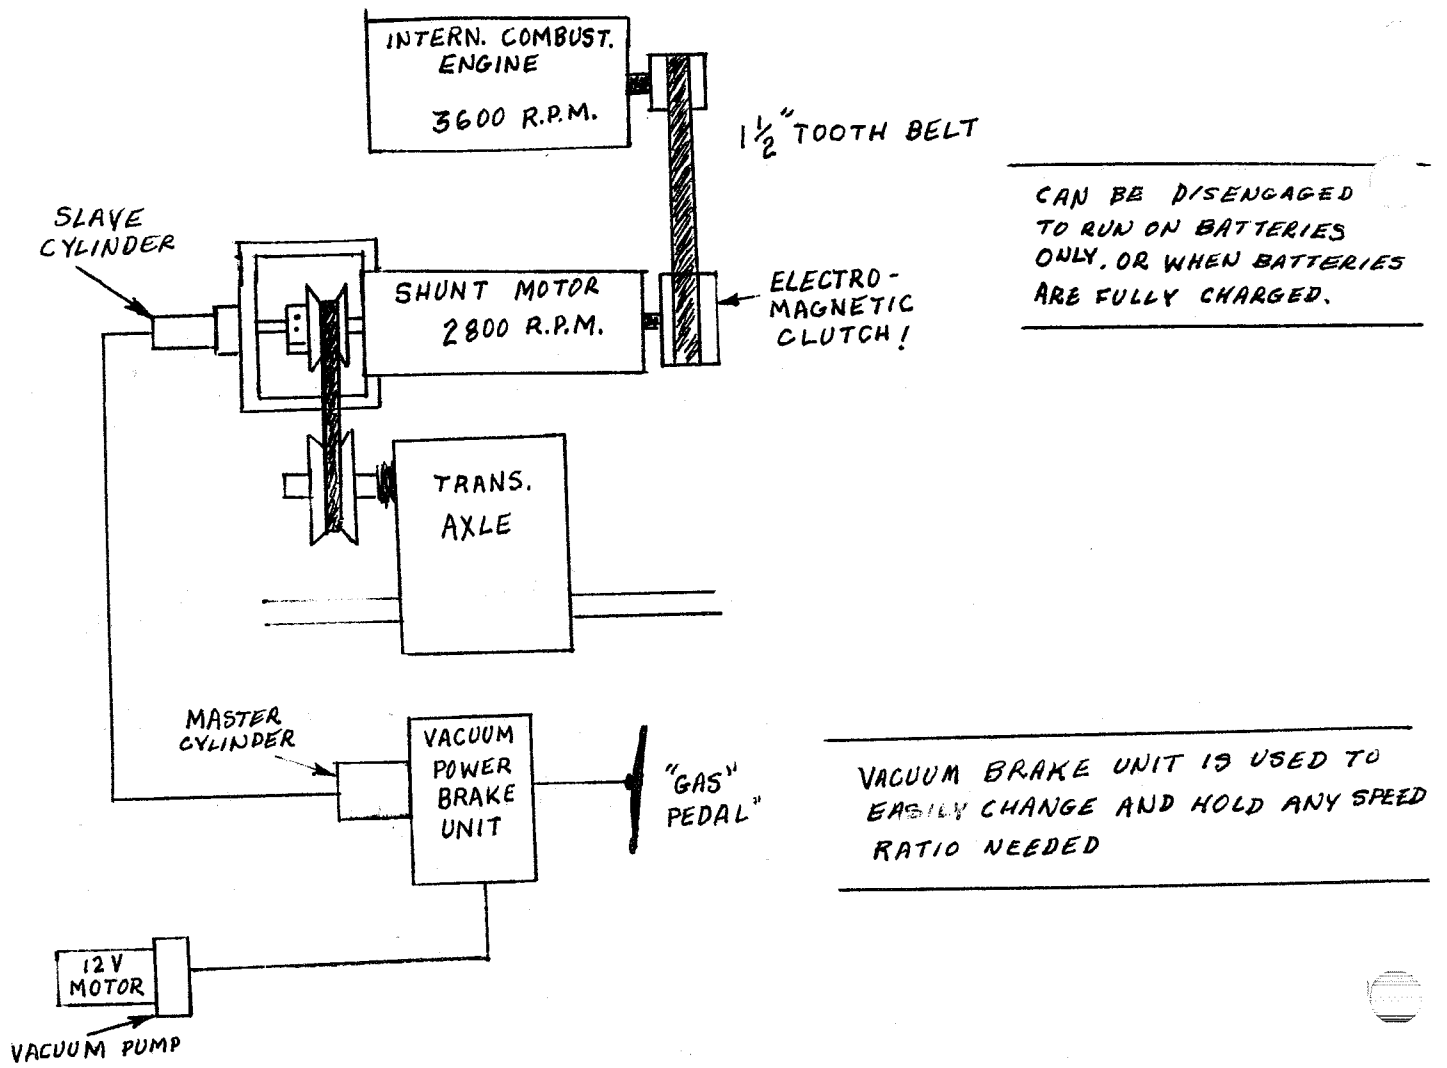 INTERN. COMBUST.
ENGINE
3600 R.P.M.
1 1/2" TOOTH BELT
CAN BE DISENGAGED
TO RUN ON BATTERIES
ONLY. OR WHEN BATTERIES
ARE FULLY CHARGED.
SLAVE
CYLINDER
SHUNT MOTOR
2800 R.P.M.
ELECTRO-
MAGNETIC
CLUTCH!
TRANS.
AXLE
MASTER
CYLINDER
VACUUM
POWER
BRAKE
UNIT
"GAS"
PEDAL"
VACUUM BRAKE UNIT IS USED TO
EASILY CHANGE AND HOLD ANY SPEED
RATIO NEEDED
12V
MOTOR
VACUUM PUMP